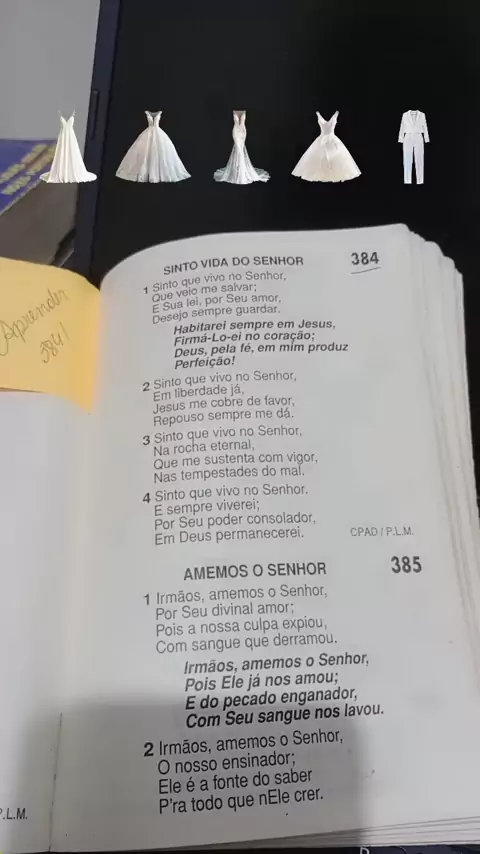 Aprender
384!
SINTO VIDA DO SENHOR 384
1 Sinto que vivo no Senhor,
Que veio me salvar;
E Sua lei, por Seu amor,
Desejo sempre guardar.
Habitarei sempre em Jesus,
Firmá-Lo-ei no coração;
Deus, pela fé, em mim produz
Perfeição!
2 Sinto que vivo no Senhor,
Em liberdade já,
Jesus me cobre de favor,
Repouso sempre me dá.
3 Sinto que vivo no Senhor,
Na rocha eternal,
Que me sustenta com vigor,
Nas tempestades do mal.
4 Sinto que vivo no Senhor.
E sempre viverei;
Por Seu poder consolador,
Em Deus permanecerei.
CPAD / P.L.M.
AMEMOS O SENHOR 385
1 Irmãos, amemos o Senhor,
Por Seu divinal amor;
Pois a nossa culpa expiou,
Com sangue que derramou.
Irmãos, amemos o Senhor,
Pois Ele já nos amou;
E do pecado enganador,
Com Seu sangue nos lavou.
2 Irmãos, amemos o Senhor,
O nosso ensinador;
Ele é a fonte do saber
P'ra todo que nEle crer.
P.L.M.